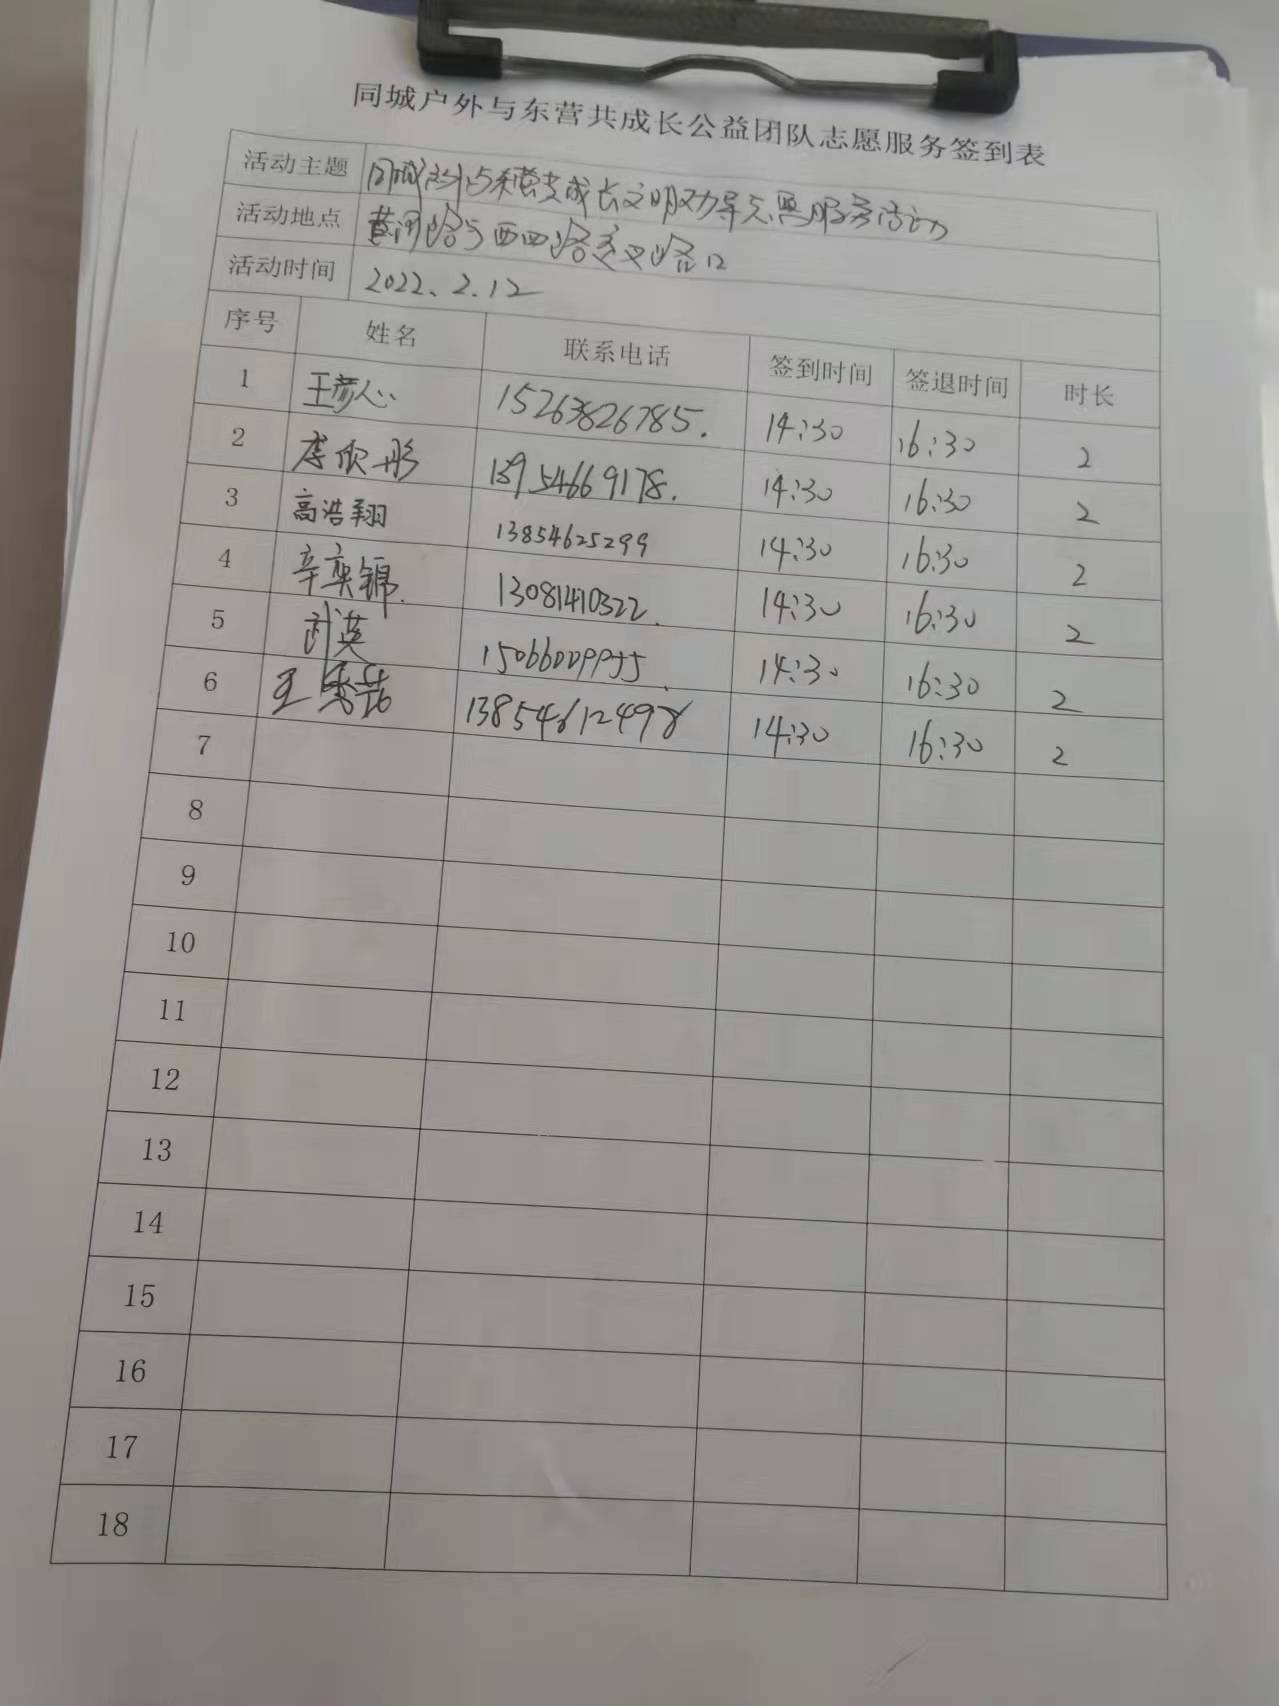 同城户外与东营共成长公益团队志愿服务签到表
活动主题 同城户外与东营共成长文明劝导志愿服务活动
活动地点 黄河路与西四路交叉路口
活动时间 2022.2.12
序号 姓名 联系电话 签到时间 签退时间 时长
1 王彦人 15263826785. 14:30 16:30 2
2 李欣彤 13954669178. 14:30 16:30 2
3 高浩翔 13854625299 14:30 16:30 2
4 辛奕锦. 13081410322. 14:30 16:30 2
5 武英 15066009955. 14:30 16:30 2
6 王秀喆 13854612498 14:30 16:30 2
7
8
9
10
11
12
13
14
15
16
17
18